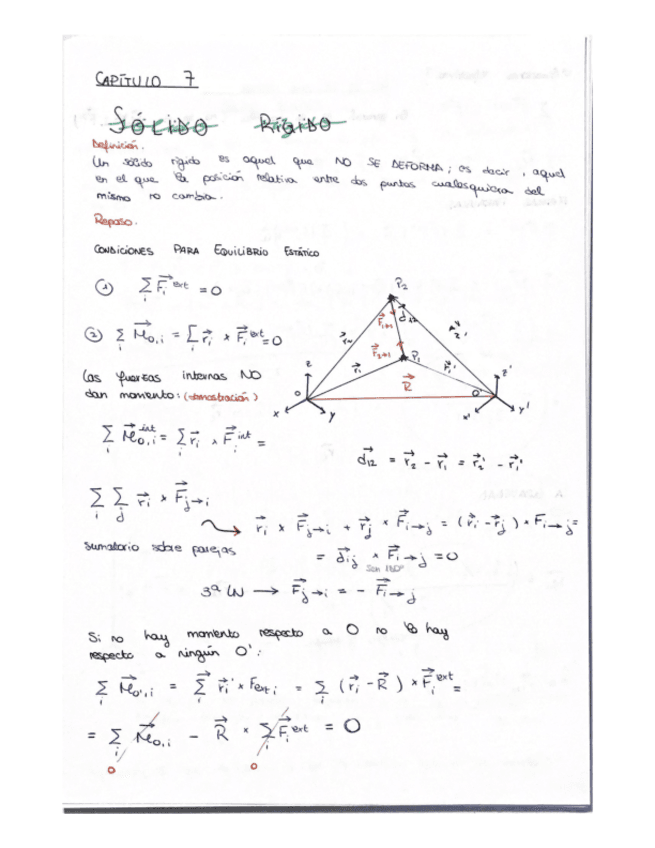 CAPÍTULO 7
SÓLIDO RÍGIDO
Definición.
Un sólido rígido es aquel que NO SE DEFORMA; es decir, aquel
en el que la posición relativa entre dos puntos cualesquiera del
mismo no cambia.
Repaso.
CONDICIONES PARA EQUILIBRIO ESTÁTICO
① Σᵢ F⃗ᵢ ext = 0
② Σᵢ M⃗o,i = Σ r⃗ᵢ × F⃗ᵢ ext = 0
Las fuerzas internas NO
dan momento: (demostración)
P₂
d⃗₁₂
P₁
r⃗₁
r⃗₁'
R⃗
z
O
x
y
z'
O'
x'
y'
Σᵢ M⃗o,i int = Σᵢ r⃗ᵢ × F⃗ᵢ int =
d⃗₁₂ = r⃗₂ - r⃗₁ = r⃗₂' - r⃗₁'
Σᵢ Σⱼ r⃗ᵢ × F⃗ⱼ→ᵢ
r⃗ᵢ × F⃗ⱼ→ᵢ + r⃗ⱼ × F⃗ᵢ→ⱼ = (r⃗ᵢ - r⃗ⱼ) × Fᵢ→ⱼ =
Sumatorio sobre parejas
= d⃗ᵢⱼ × F⃗ᵢ→ⱼ = 0
Son 180º
3ª LN → F⃗ⱼ→ᵢ = - F⃗ᵢ→ⱼ
Si no hay momento respecto a O no lo hay
respecto a ningún O':
Σᵢ M⃗o',i = Σ r⃗ᵢ' × Fext,i = Σᵢ (r⃗ᵢ - R⃗) × F⃗ᵢ ext =
= Σᵢ M⃗o,i - R⃗ × Σᵢ F⃗ᵢ ext = 0
0 0